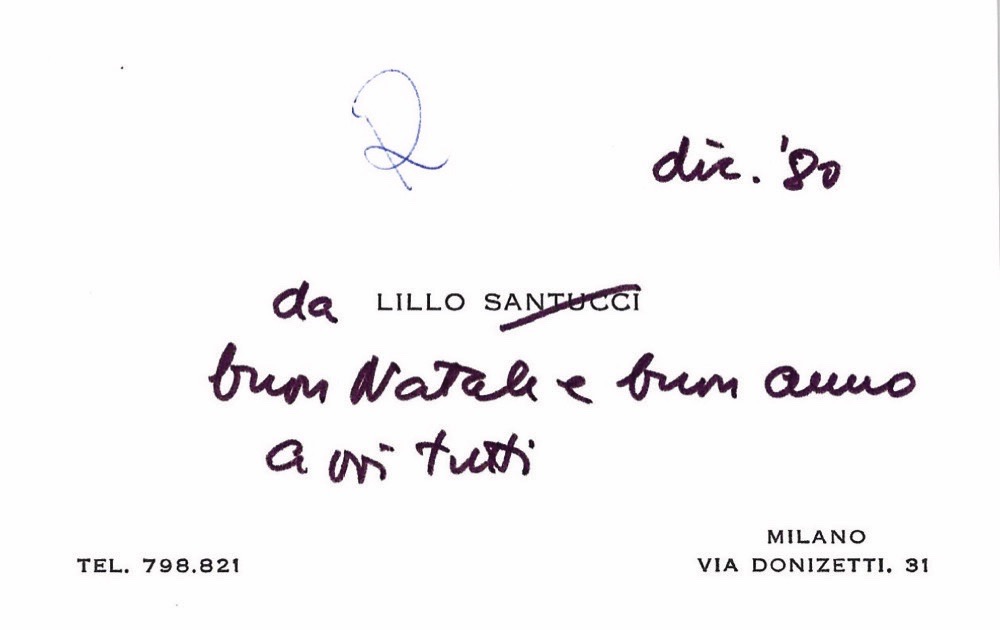 R
dic. '80
da LILLO SANTUCCI
buon Natale e buon anno
a voi tutti
MILANO
TEL. 798.821
VIA DONIZETTI. 31